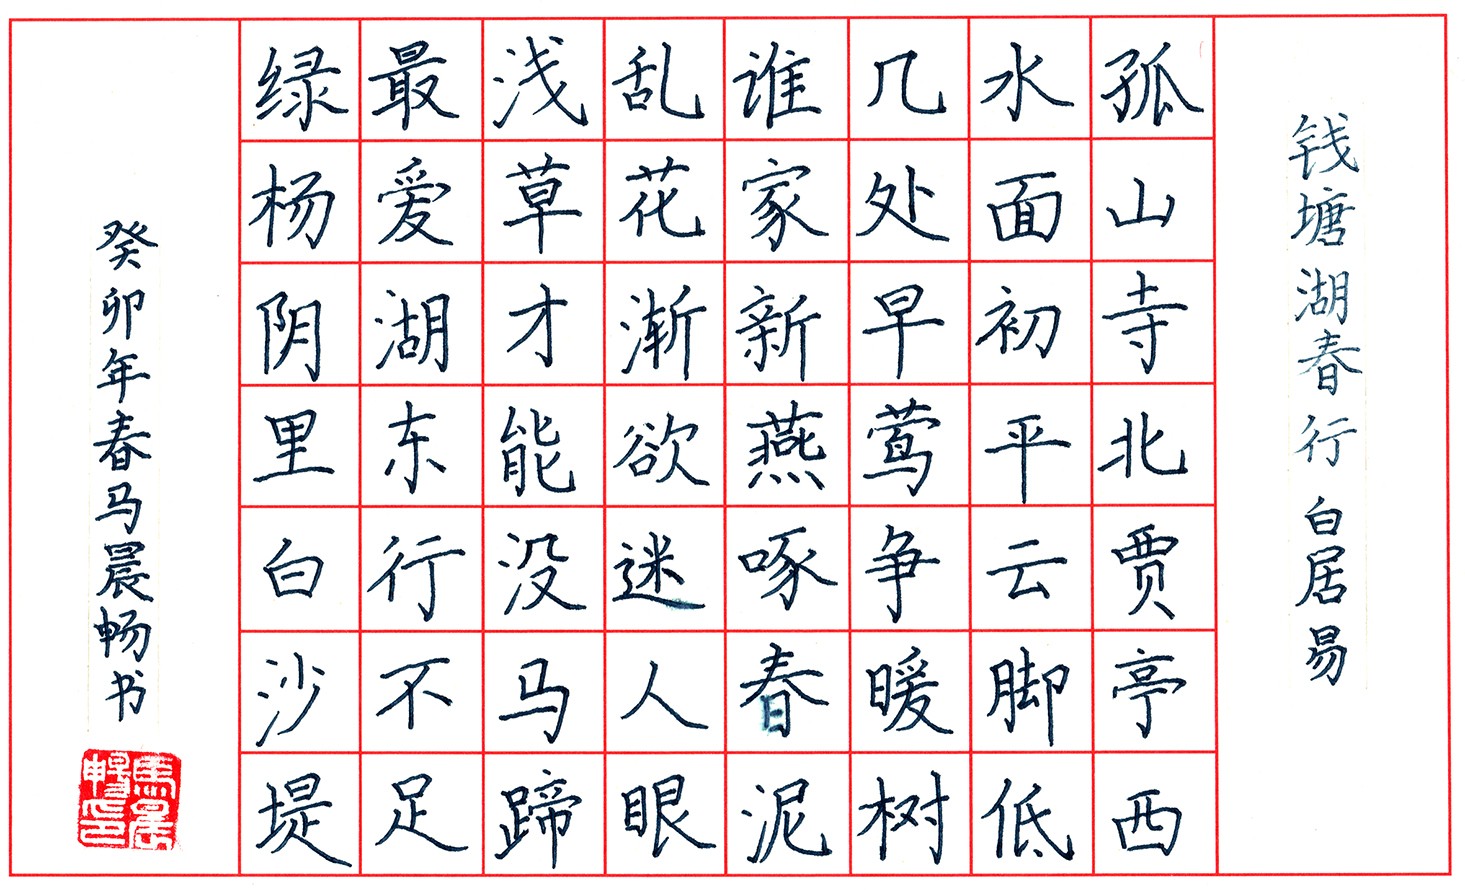 钱塘湖春行 白居易
孤山寺北贾亭西
水面初平云脚低
几处早莺争暖树
谁家新燕啄春泥
乱花渐欲迷人眼
浅草才能没马蹄
最爱湖东行不足
绿杨阴里白沙堤
癸卯年春马晨畅书
馬晨暢印